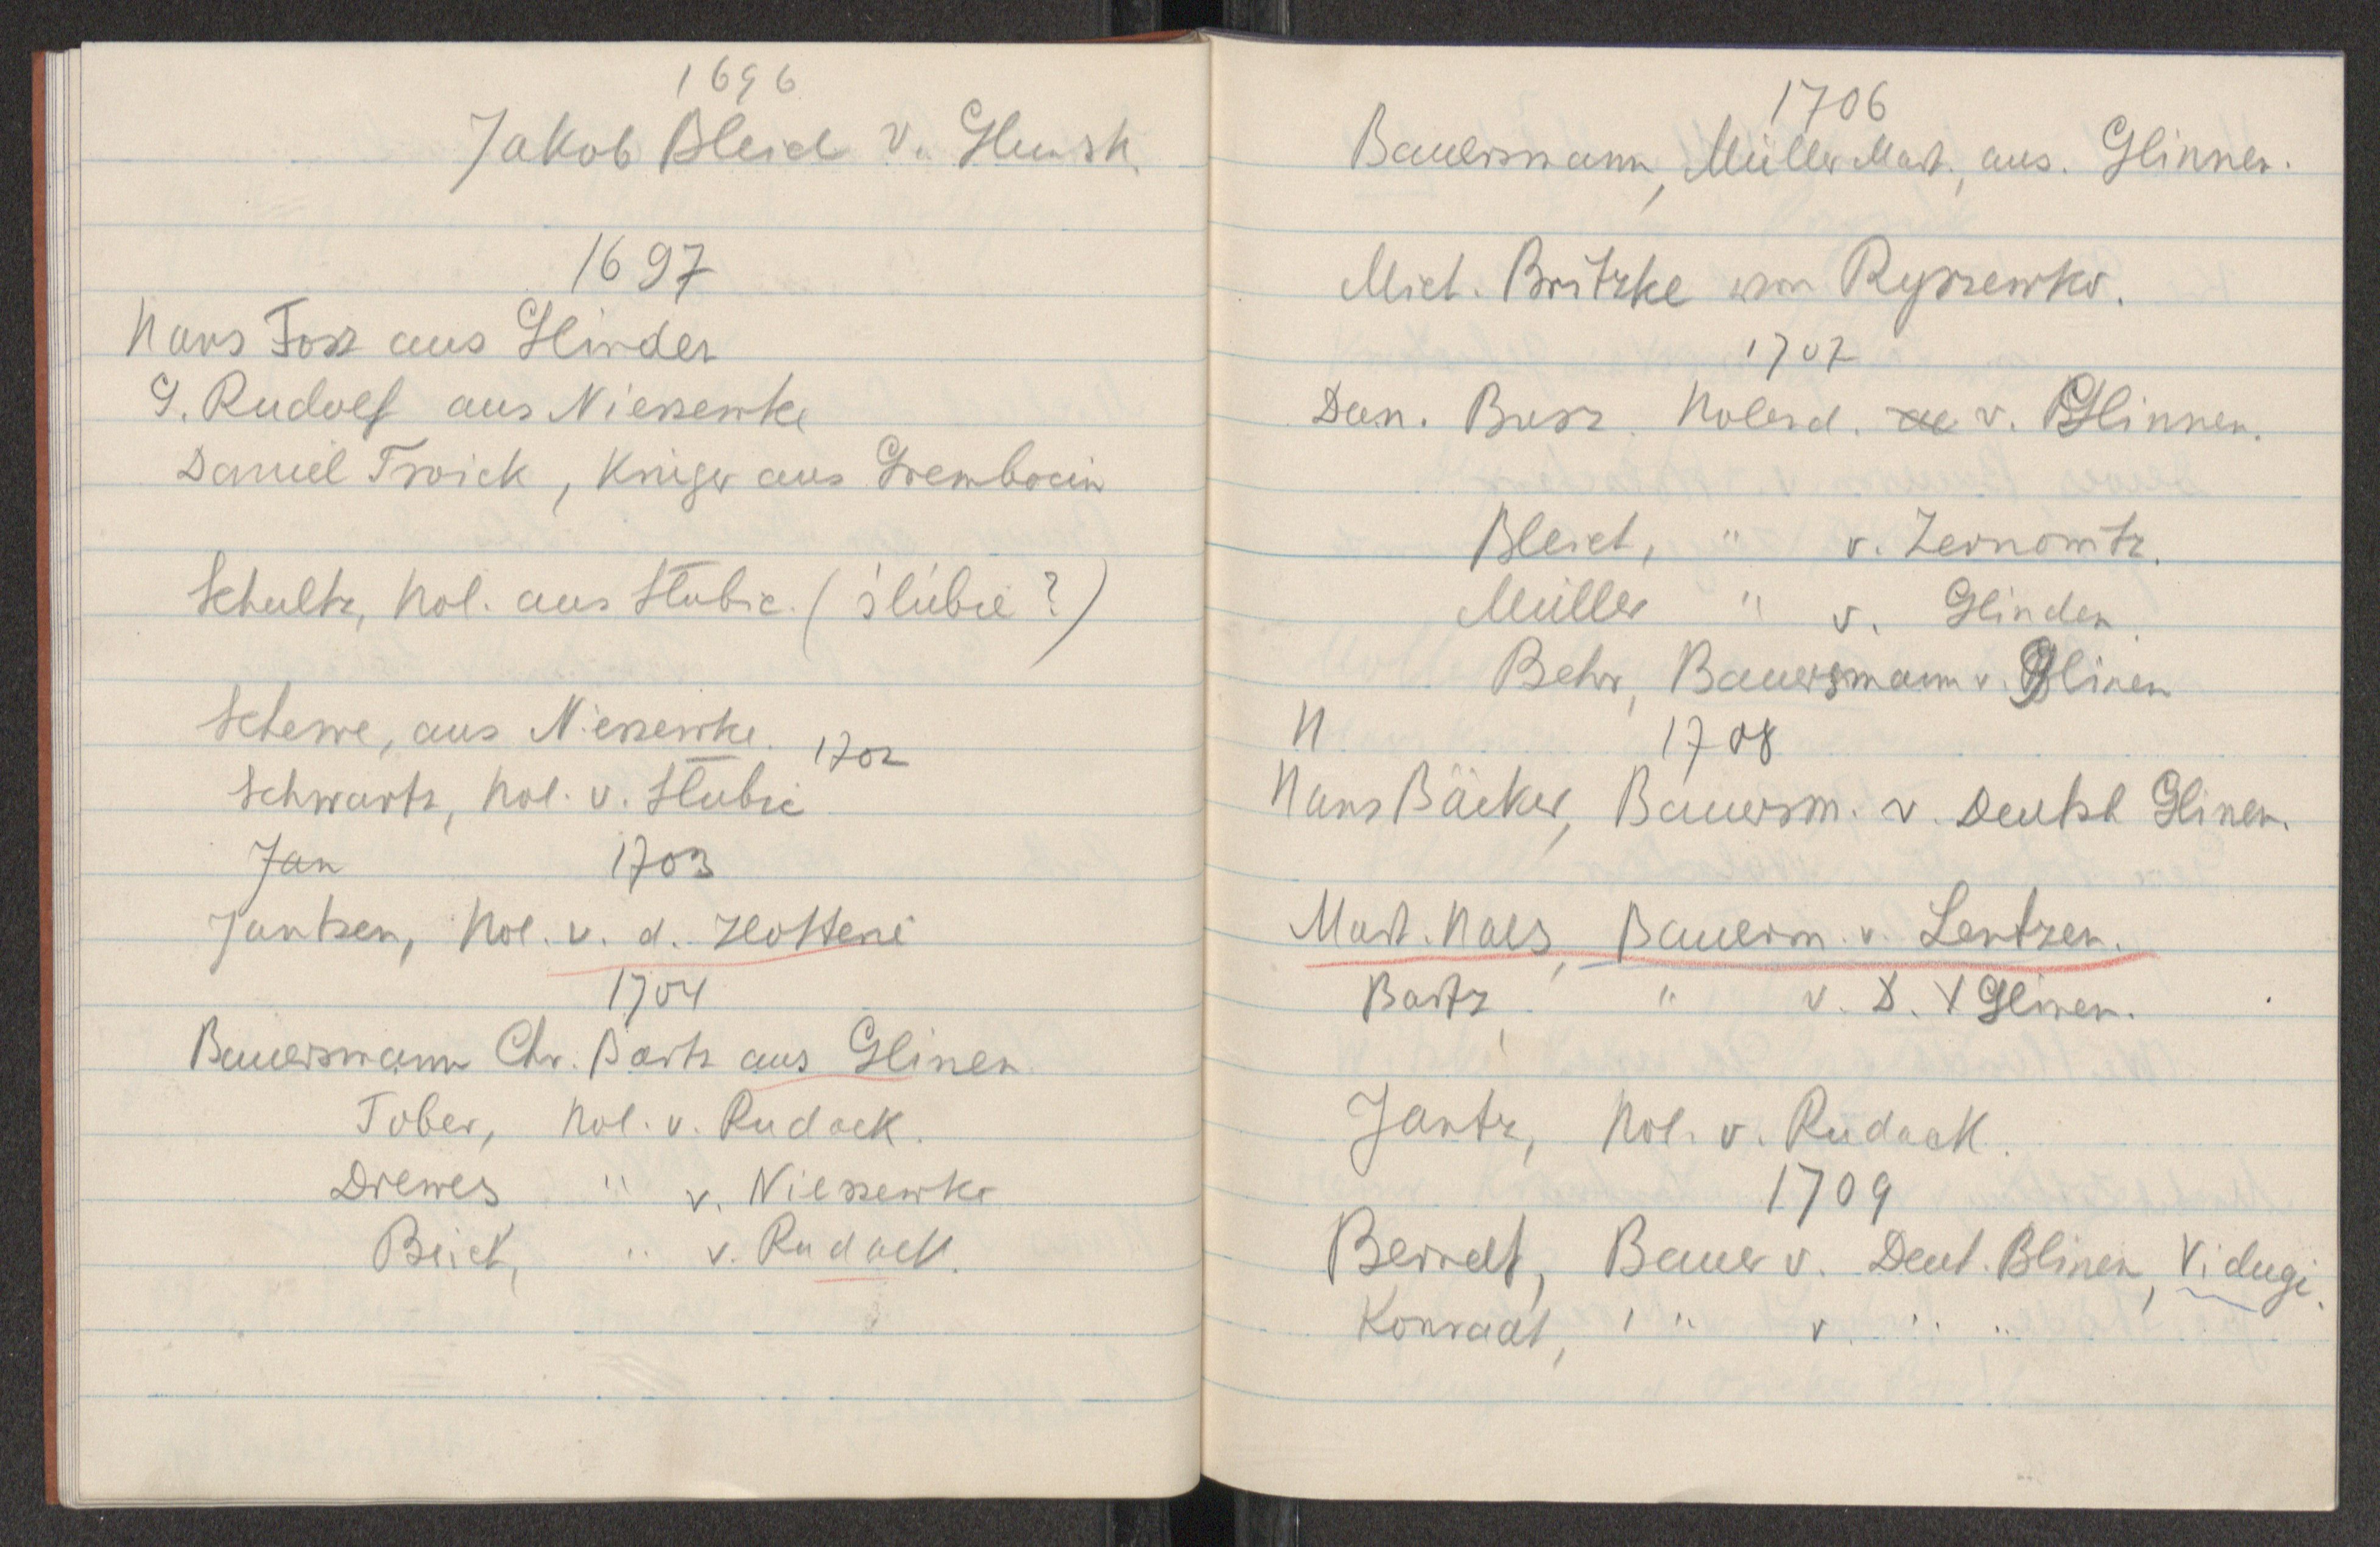 1696
Jakob Bleich v. Glunsk.
1697
Hans Foss aus Glinder
G. Rudolf aus Niessewke
Daniel Troick, Krüger aus Grembocin
Schultz, Hol. aus Stubic. (slubie?)
Schewe, aus Niessewke.
1702
Schwartz, Hol. v. Stubic
Jan
1703
Jantzen, Hol. v. d. Zlotterie
1704
Bauersmann Chr. Bartz aus Glinen
Tober, Hol. v. Rudack.
Drewes " v. Niessewke
Beich, " v. Rudack.
1706
Bauersmann, Müller Mart., aus. Glinnen.
Mich. Britzke von Ryszewko.
1707
Dan. Buss. Holend. v. Glinnen.
Bleich, " v. Zernowitz.
Müller " v. Glinden.
Behr, Bauersmann v. Glinen
H
1708
Hans Bäcker, Bauersm. v. Deutsch Glinen.
Mart. Hals, Bauerm. v. Lentzen.
Bartz, " v. D. Glinen.
Jantz, Hol. v. Rudack.
1709
Berndt, Bauer v. Deut. Blinen, Vidugi.
Konradt, " v. " "